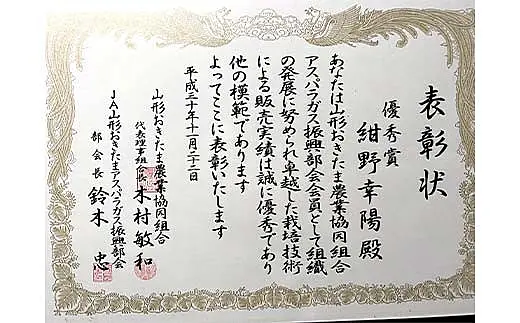 表彰状
優秀賞
紺野幸陽殿
あなたは山形おきたま農業協同組合
アスパラガス振興部会会員として組織
の発展に努められ卓越した栽培技術
による販売実績は誠に優秀であり
他の模範であります
よってここに表彰いたします
平成三十年十一月二十二日
山形おきたま農業協同組合
代表理事組合長 木村敏和
JA山形おきたまアスパラガス振興部会
部会長 鈴木 忠